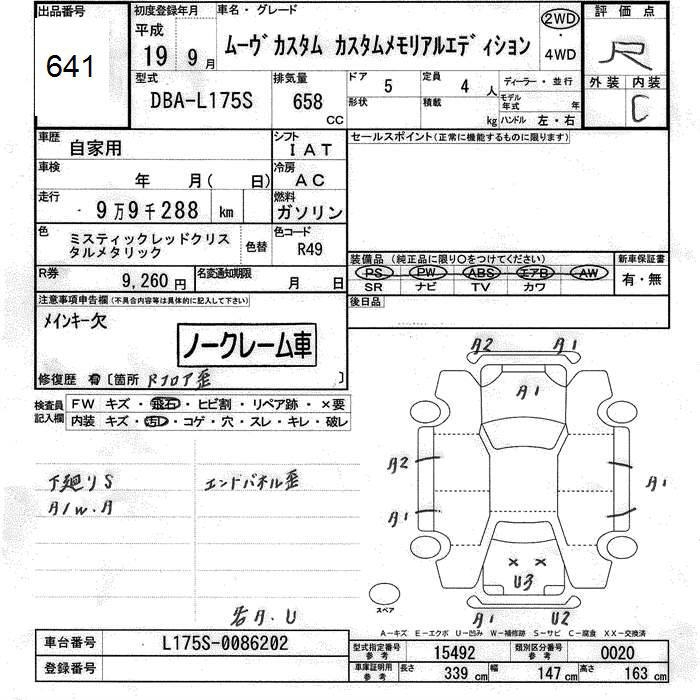 出品番号
641
初度登録年月
平成
19 9月
車名・グレード
ムーヴカスタム カスタムメモリアルエディション
2WD
・
4WD
評価点
R
外装 内装
C
型式
DBA-L175S
排気量
658
CC
ドア
5
定員
4 人
形状
積載
kg
ディーラー・並行
モデル年式 年
ハンドル 左・右
車歴
自家用
シフト
IAT
車検
年 月( 日)
冷房
AC
走行
9万9千288 km
燃料
ガソリン
色
ミスティックレッドクリス
タルメタリック
色替
色コード
R49
R券
9,260円
名変通知期限
月 日
セールスポイント(正常に機能するものに限ります)
装備品(純正品に限り○をつけてください)
新車保証書
PS PW ABS エアB AW
SR ナビ TV カワ
有・無
後日品
注意事項申告欄(不具合内容等は具体的に記入して下さい)
メインキー欠
ノークレーム車
修復歴 有〔箇所 Rフロア歪 〕
検査員
記入欄
FW キズ・飛石・ヒビ割・リペア跡・×要
内装 キズ・汚レ・コゲ・穴・スレ・キレ・破レ
下廻りS
A/W.A
エンドパネル歪
各A.U
A2
A1
A1
A2
A1
A1
× ×
U3
A1
U2
スペア
A-キズ E-エクボ U-凹み W-補修跡 S-サビ C-腐食 XX-交換済
車台番号
L175S-0086202
登録番号
型式指定番号
参考
15492
類別区分番号
参考
0020
車庫証明用
参考
長さ 339 cm 幅 147 cm 高さ 163 cm